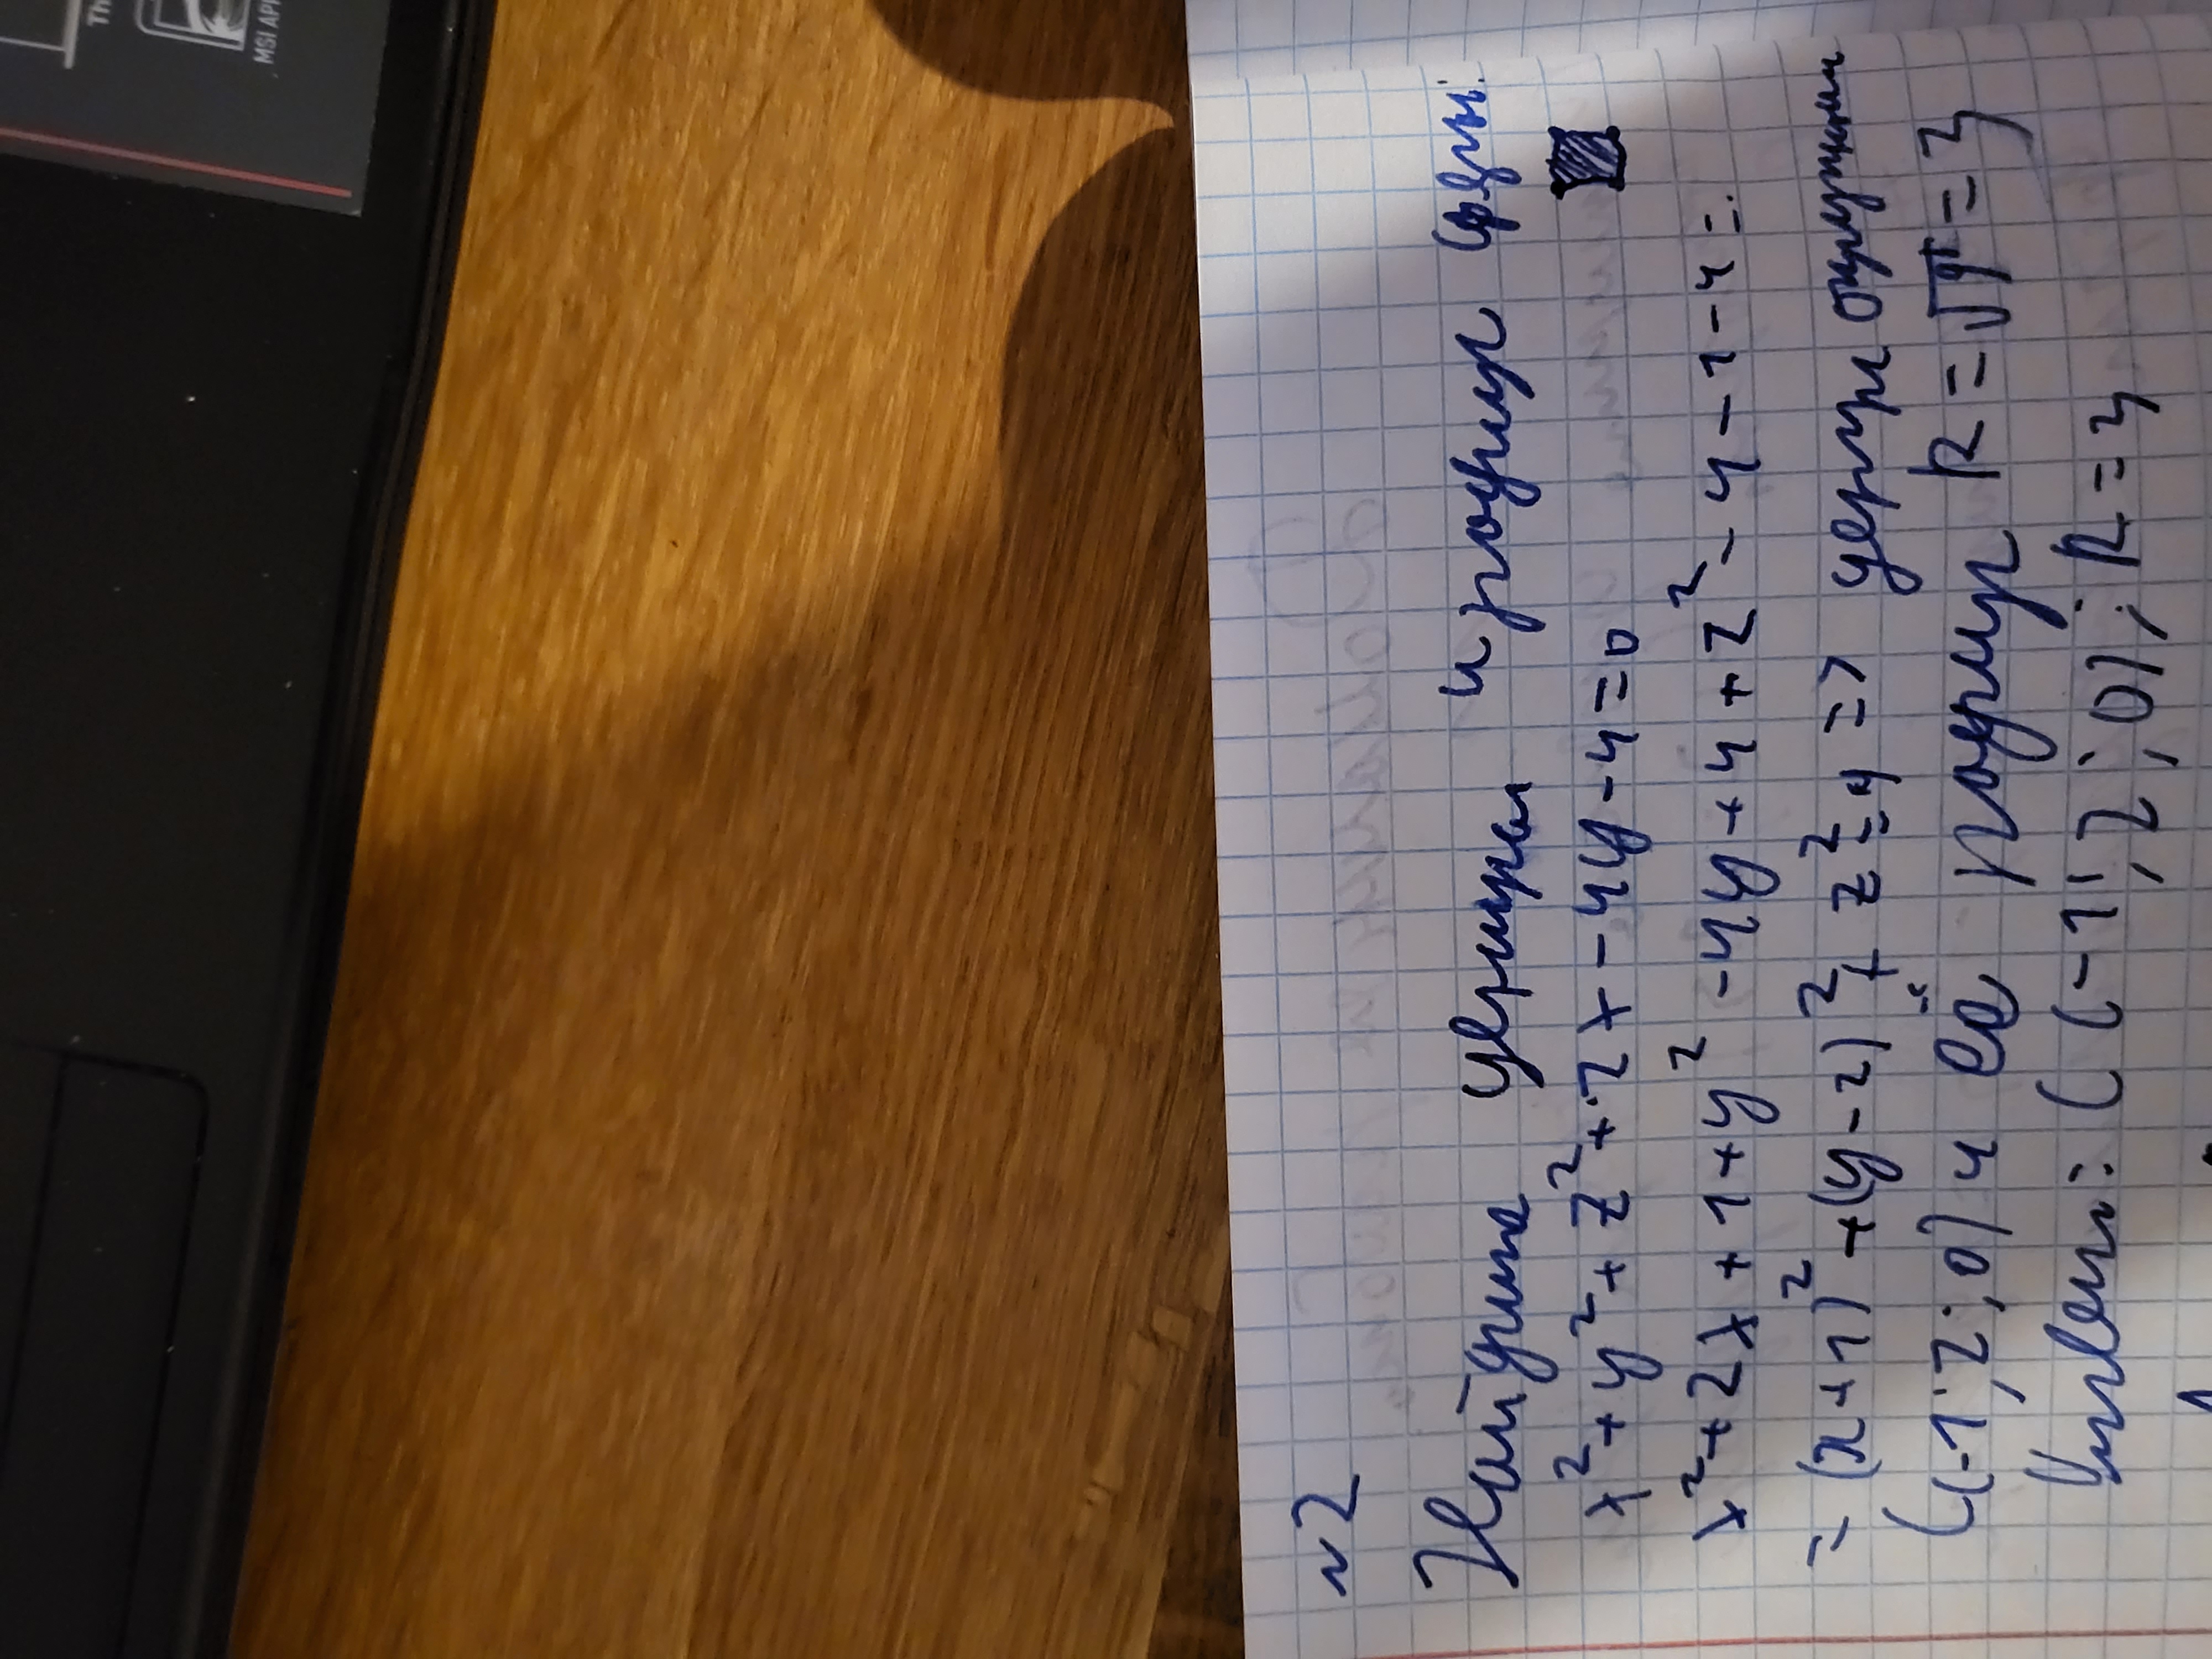 Th
MSI AP
№2
Найдите центр и радиус сферы:
x²+y²+z²+2x-4y-4=0
x²+2x+1+y²-4y+4+z²-4-1-4=
=(x+1)²+(y-2)²+z²=9 => центр окружности
C(-1;2;0) и её радиус R=√9=3
Ответ: C(-1;2;0); R=3